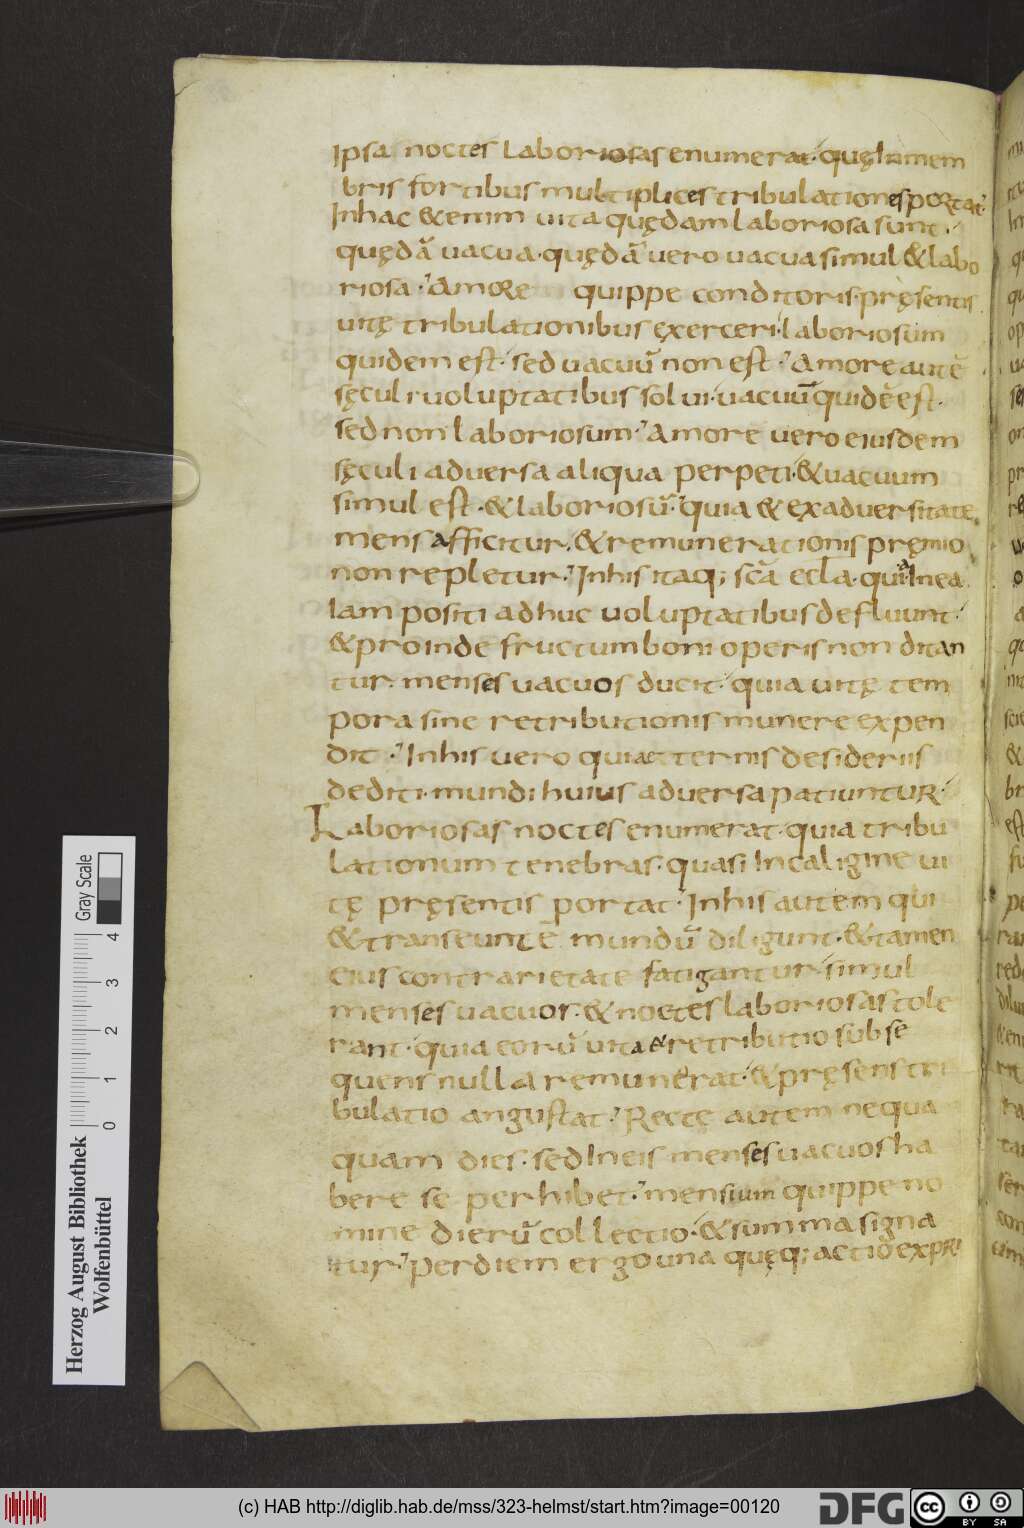 ipsa noctes Laboriosas enumerat. quę In mem
bris fortibus multiplices tribulationes portat.
In hac & enim uita quędam laboriosa sunt.
quędā uacua. quędā uero uacua simul & labo
riosa. Amore quippe conditoris. pręsentis
uitę tribulationibus exerceri. laboriosum
quidem est. sed uacuū non est. Amore autē
sęculi uoluptatibus solui. uacuū quidē est.
sed non laboriosum. Amore uero eiusdem
sęculi aduersa aliqua perpeti. & uacuum
simul est. & laboriosū. quia & ex aduersitate
mens afficitur. & remunerationis pręmio
non repletur. In his itaq; scā eccła. qui a In ea
Iam positi adhuc uoluptatibus defluunt.
& proinde fructum boni operis non ditan
tur. menses uacuos ducit. quia uitę tem
pora sine retributionis munere expen
dit. In his uero qui aeternis desideriis
dediti. mundi huius aduersa patiuntur.
Laboriosas noctes enumerat. quia tribu
lationum tenebras. quasi In caligine ui
tę pręsentis portat. In his autem qui
& transeuntē mundū diligunt. & tamen
eius contrarietate fatigantur. simul
menses uacuos. & noctes laboriosas tole
rant. quia eorū uita & retributio subse
quens nulla remunerat. & pręsens tri
bulatio angustat. Recte autem nequa
quam dies. sed In eis menses uacuos ha
bere se perhibet. mensium quippe no
mine dierū collectio. & summa signa
tur. Per diem ergo una quęq; actio expri
Herzog August Bibliothek
Wolfenbüttel
Gray Scale
0 1 2 3 4
(c) HAB http://diglib.hab.de/mss/323-helmst/start.htm?image=00120
DFG
cc BY SA